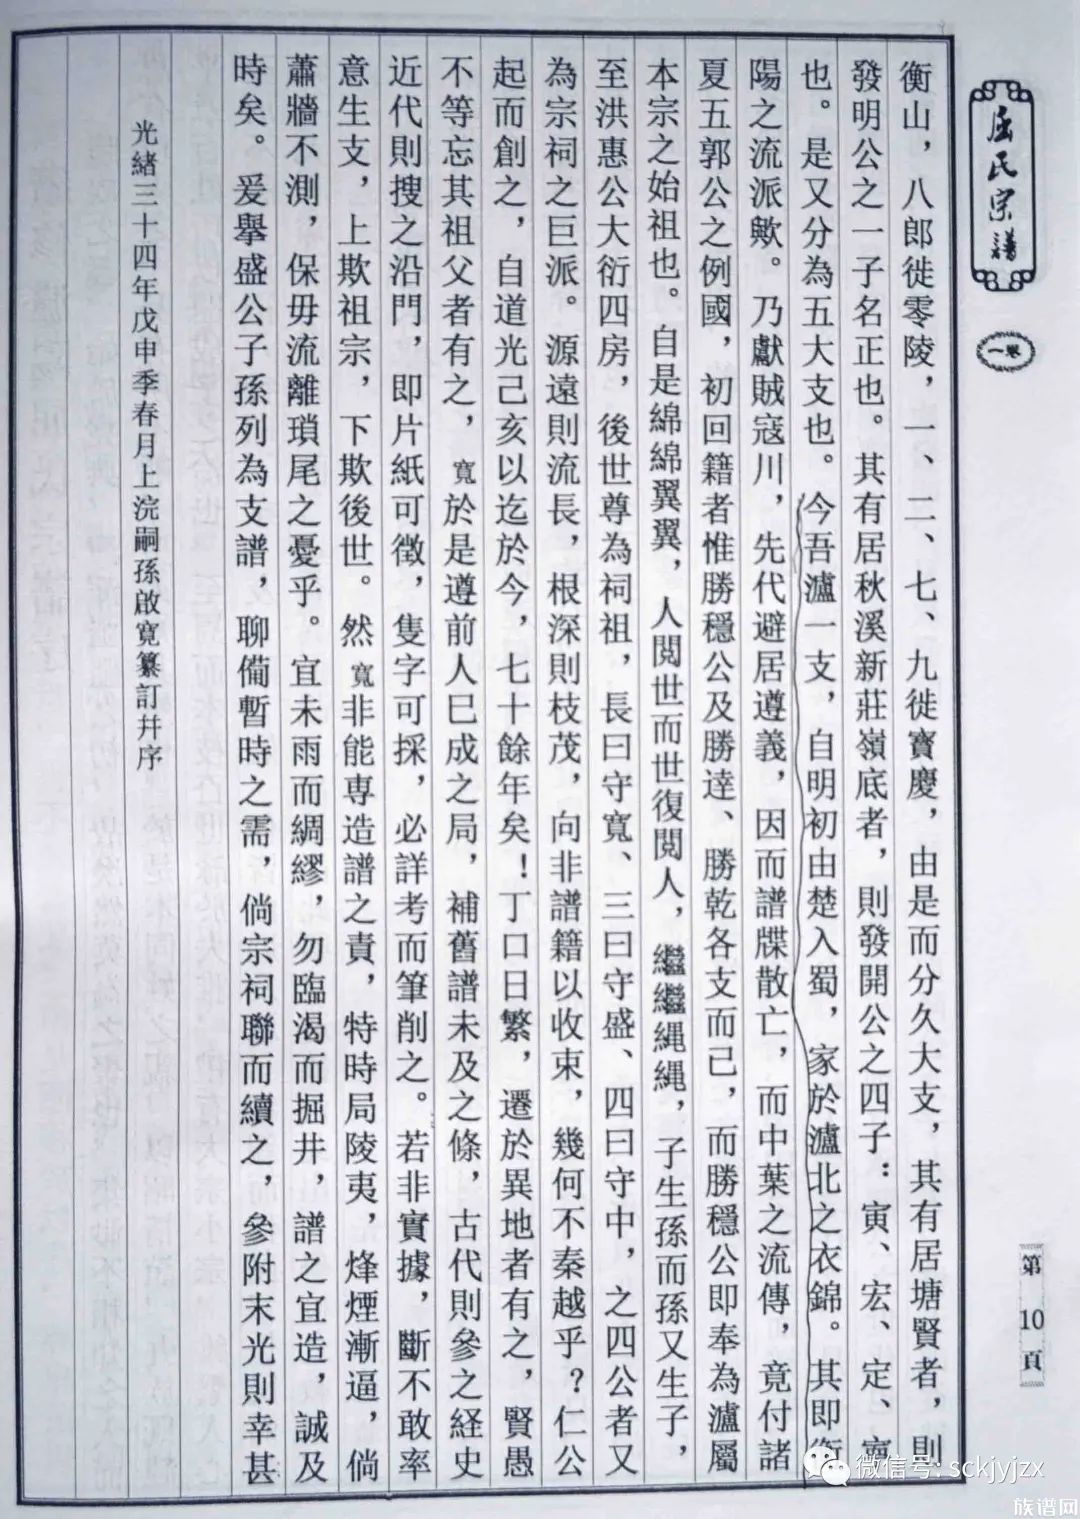 屈氏宗譜
一卷
第10頁
衡山，八郎徙零陵，一、二、七、九徙寶慶，由是而分久大支，其有居塘賢者，則
發明公之一子名正也。其有居秋溪新莊嶺底者，則發開公之四子：寅、宏、定、
也。是又分為五大支也。今吾瀘一支，自明初由楚入蜀，家於瀘北之衣錦。其即衡
陽之流派歟。乃獻賊寇川，先代避居遵義，因而譜牒散亡，而中葉之流傳，竟付諸
夏五郭公之例國，初回籍者惟勝穩公及勝達、勝乾各支而已，而勝穩公即奉為瀘屬
本宗之始祖也。自是綿綿翼翼，人閱世而世復閱人，繼繼繩繩，子生孫而孫又生子，
至洪惠公大衍四房，後世尊為祠祖，長曰守寬、三曰守盛、四曰守中，之四公者又
為宗祠之巨派。源遠則流長，根深則枝茂，向非譜籍以收束，幾何不秦越乎？仁公
起而創之，自道光己亥以迄於今，七十餘年矣！丁口日繁，遷於異地者有之，賢愚
不等忘其祖父者有之，寬於是遵前人巳成之局，補舊譜未及之條，古代則參之経史
近代則搜之沿門，即片紙可徵，隻字可採，必詳考而筆削之。若非實據，斷不敢率
意生支，上欺祖宗，下欺後世。然寬非能専造譜之責，特時局陵夷，烽煙漸逼，倘
蕭牆不測，保毋流離瑣尾之憂乎。宜未雨而綢繆，勿臨渴而掘井，譜之宜造，誠及
時矣。爰舉盛公子孫列為支譜，聊備暫時之需，倘宗祠聯而續之，參附末光則幸甚
光緒三十四年戊申季春月上浣嗣孫啟寬纂訂幷序
微信号: sckjyjzx
族谱网